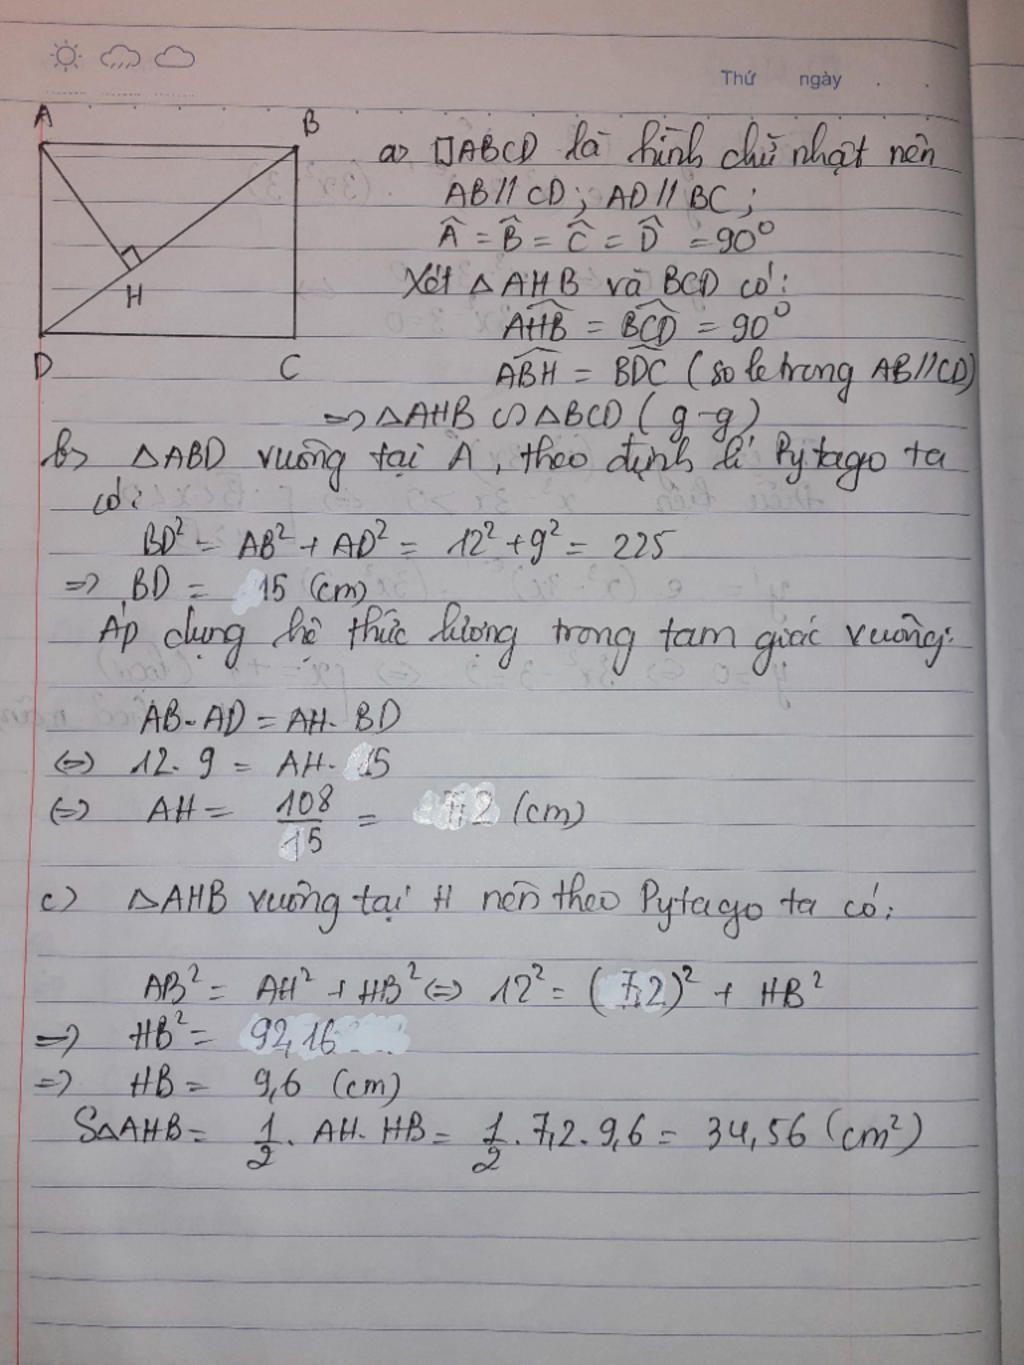 Thứ ngày
A
B
H
D
C
a) □ABCD là hình chữ nhật nên
AB // CD ; AD // BC ;
Â = B̂ = Ĉ = D̂ = 90⁰
Xét △AHB và BCD có :
AHB^ = BCD^ = 90⁰
ABH^ = BDC^ ( so le trong AB//CD)
=> △AHB ∽ △BCD ( g-g)
b) △ABD vuông tại A , theo định lí Pytago ta
có :
BD² = AB² + AD² = 12² + 9² = 225
=> BD = 15 (cm)
Áp dụng hệ thức lượng trong tam giác vuông:
AB . AD = AH . BD
<=> 12 . 9 = AH . 15
<=> AH = 108/15 = 7,2 (cm)
c) △AHB vuông tại H nên theo Pytago ta có :
AB² = AH² + HB² <=> 12² = (7,2)² + HB²
=> HB² = 92,16
=> HB = 9,6 (cm)
S△AHB = 1/2 . AH . HB = 1/2 . 7,2 . 9,6 = 34,56 (cm²)